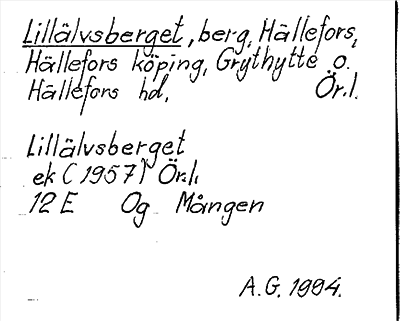 Lillälvsberget, berg, Hällefors,
Hällefors köping, Grythytte o.
Hällefors hd, Ör.l.
Lillälvsberget
ek (1957) Ör.l.
12 E Og Mången
A.G. 1994.